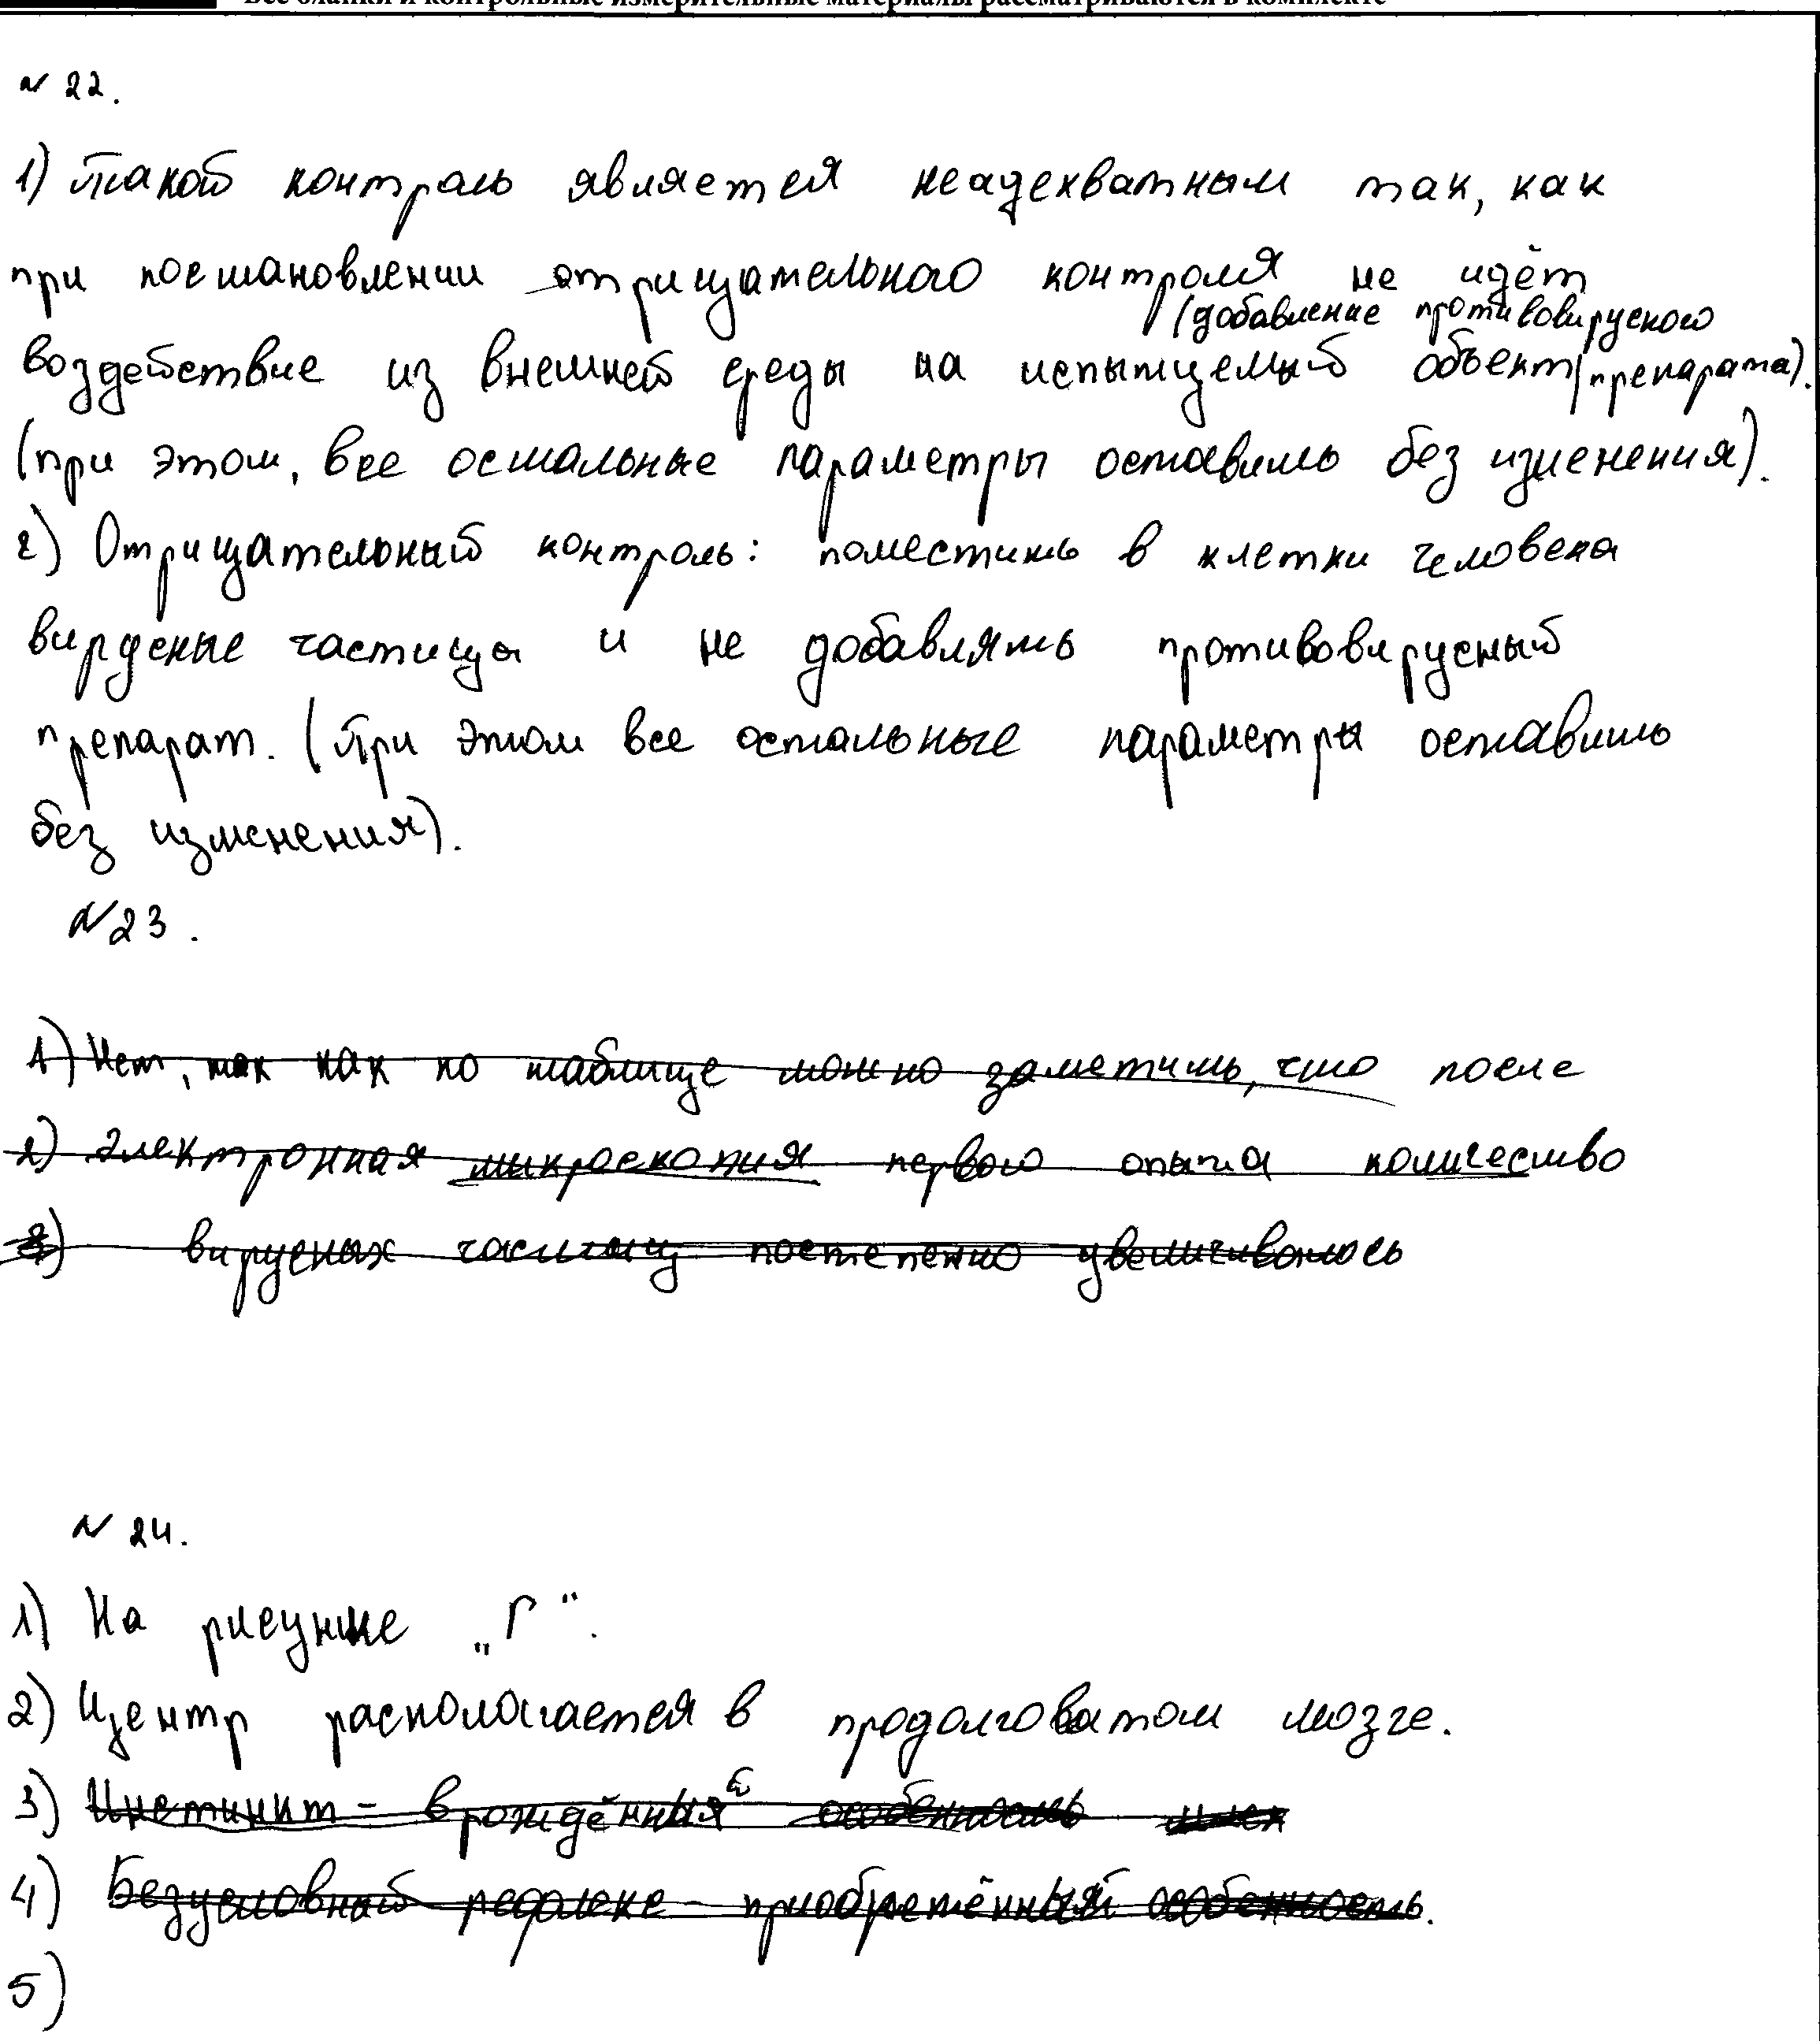 Все бланки и контрольные измерительные материалы рассматриваются в комплекте
№ 22.
1) Такой контроль является неадекватным так, как
при постановлении отрицательного контроля не идёт
(добавление противовирусного
воздействие из внешней среды на испытуемый объект препарата).
(при этом, все остальные параметры оставить без изменения).
2) Отрицательный контроль: поместить в клетки человека
вирусные частицы и не добавлять противовирусный
препарат. (При этом все остальные параметры оставить
без изменения).
№ 23.
1) Нет, так как по таблице можно заметить, что после
2) Электронная микроскопия первого опыта количество
3) вирусных частиц постепенно увеличивалось
№ 24.
1) На рисунке „Г“.
2) Центр располагается в продолговатом мозге.
3) Инстинкт - врождённый особенность
4) Безусловный рефлекс - приобретённый особенность.
5)